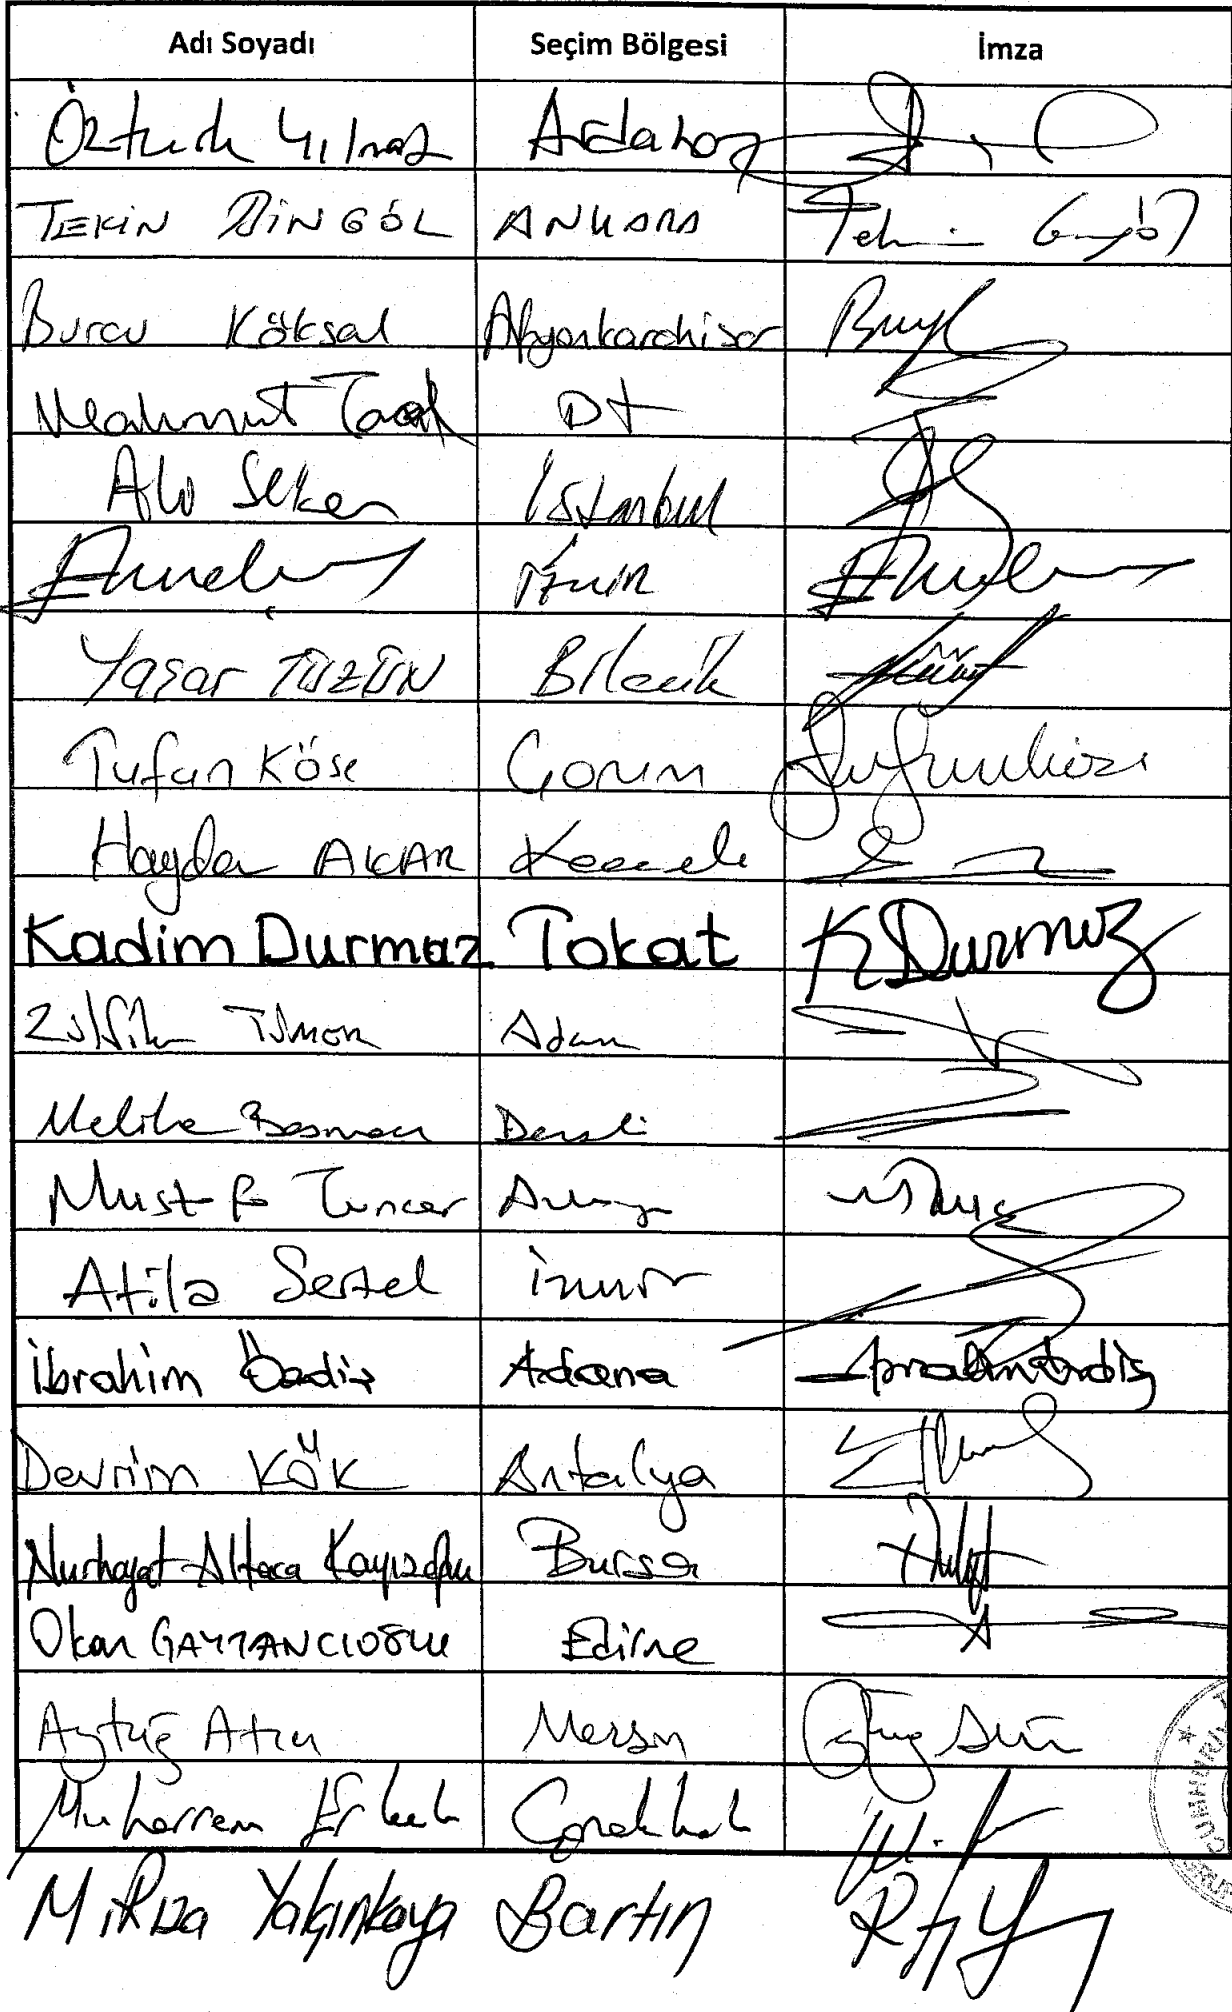 Adı Soyadı Seçim Bölgesi İmza
Öztürk Yılmaz Ardahan
TEKİN BİNGÖL ANKARA Tekin Bingöl
Burcu Köksal Afyonkarahisar
Mahmut Tanal
Ali Şeker İstanbul
İzmir
Yaşar TÜZÜN Bilecik
Tufan Köse Çorum
Haydar AKAR Kocaeli
Kadim Durmaz Tokat K Durmaz
Zülfikar Tümer Adana
Melike Basmacı Denizli
Mustafa Tuncer Amasya
Atila Sertel İzmir
İbrahim Özdiş Adana
Devrim KÖK Antalya
Nurhayat Altaca Kayışoğlu Bursa
Okan GAYTANCIOĞLU Edirne
Aytuğ Atıcı Mersin
Muharrem Erkek Çanakkale
M. Rıza Yalçınkaya Bartın